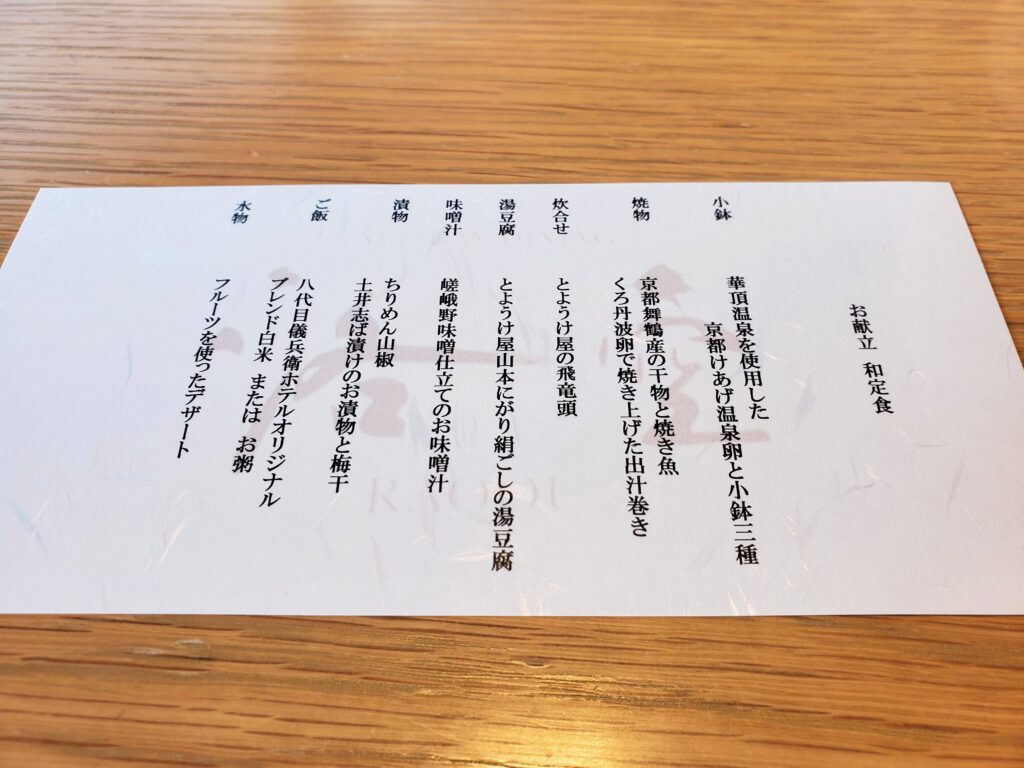 お献立 和定食
小鉢
華頂温泉を使用した
京都けあげ温泉卵と小鉢三種
焼物
京都舞鶴産の干物と焼き魚
くろ丹波卵で焼き上げた出汁巻き
炊合せ
とようけ屋の飛竜頭
湯豆腐
とようけ屋山本にがり絹ごしの湯豆腐
味噌汁
嵯峨野味噌仕立てのお味噌汁
漬物
ちりめん山椒
土井志ば漬けのお漬物と梅干
ご飯
八代目儀兵衛ホテルオリジナル
ブレンド白米 または お粥
水物
フルーツを使ったデザート